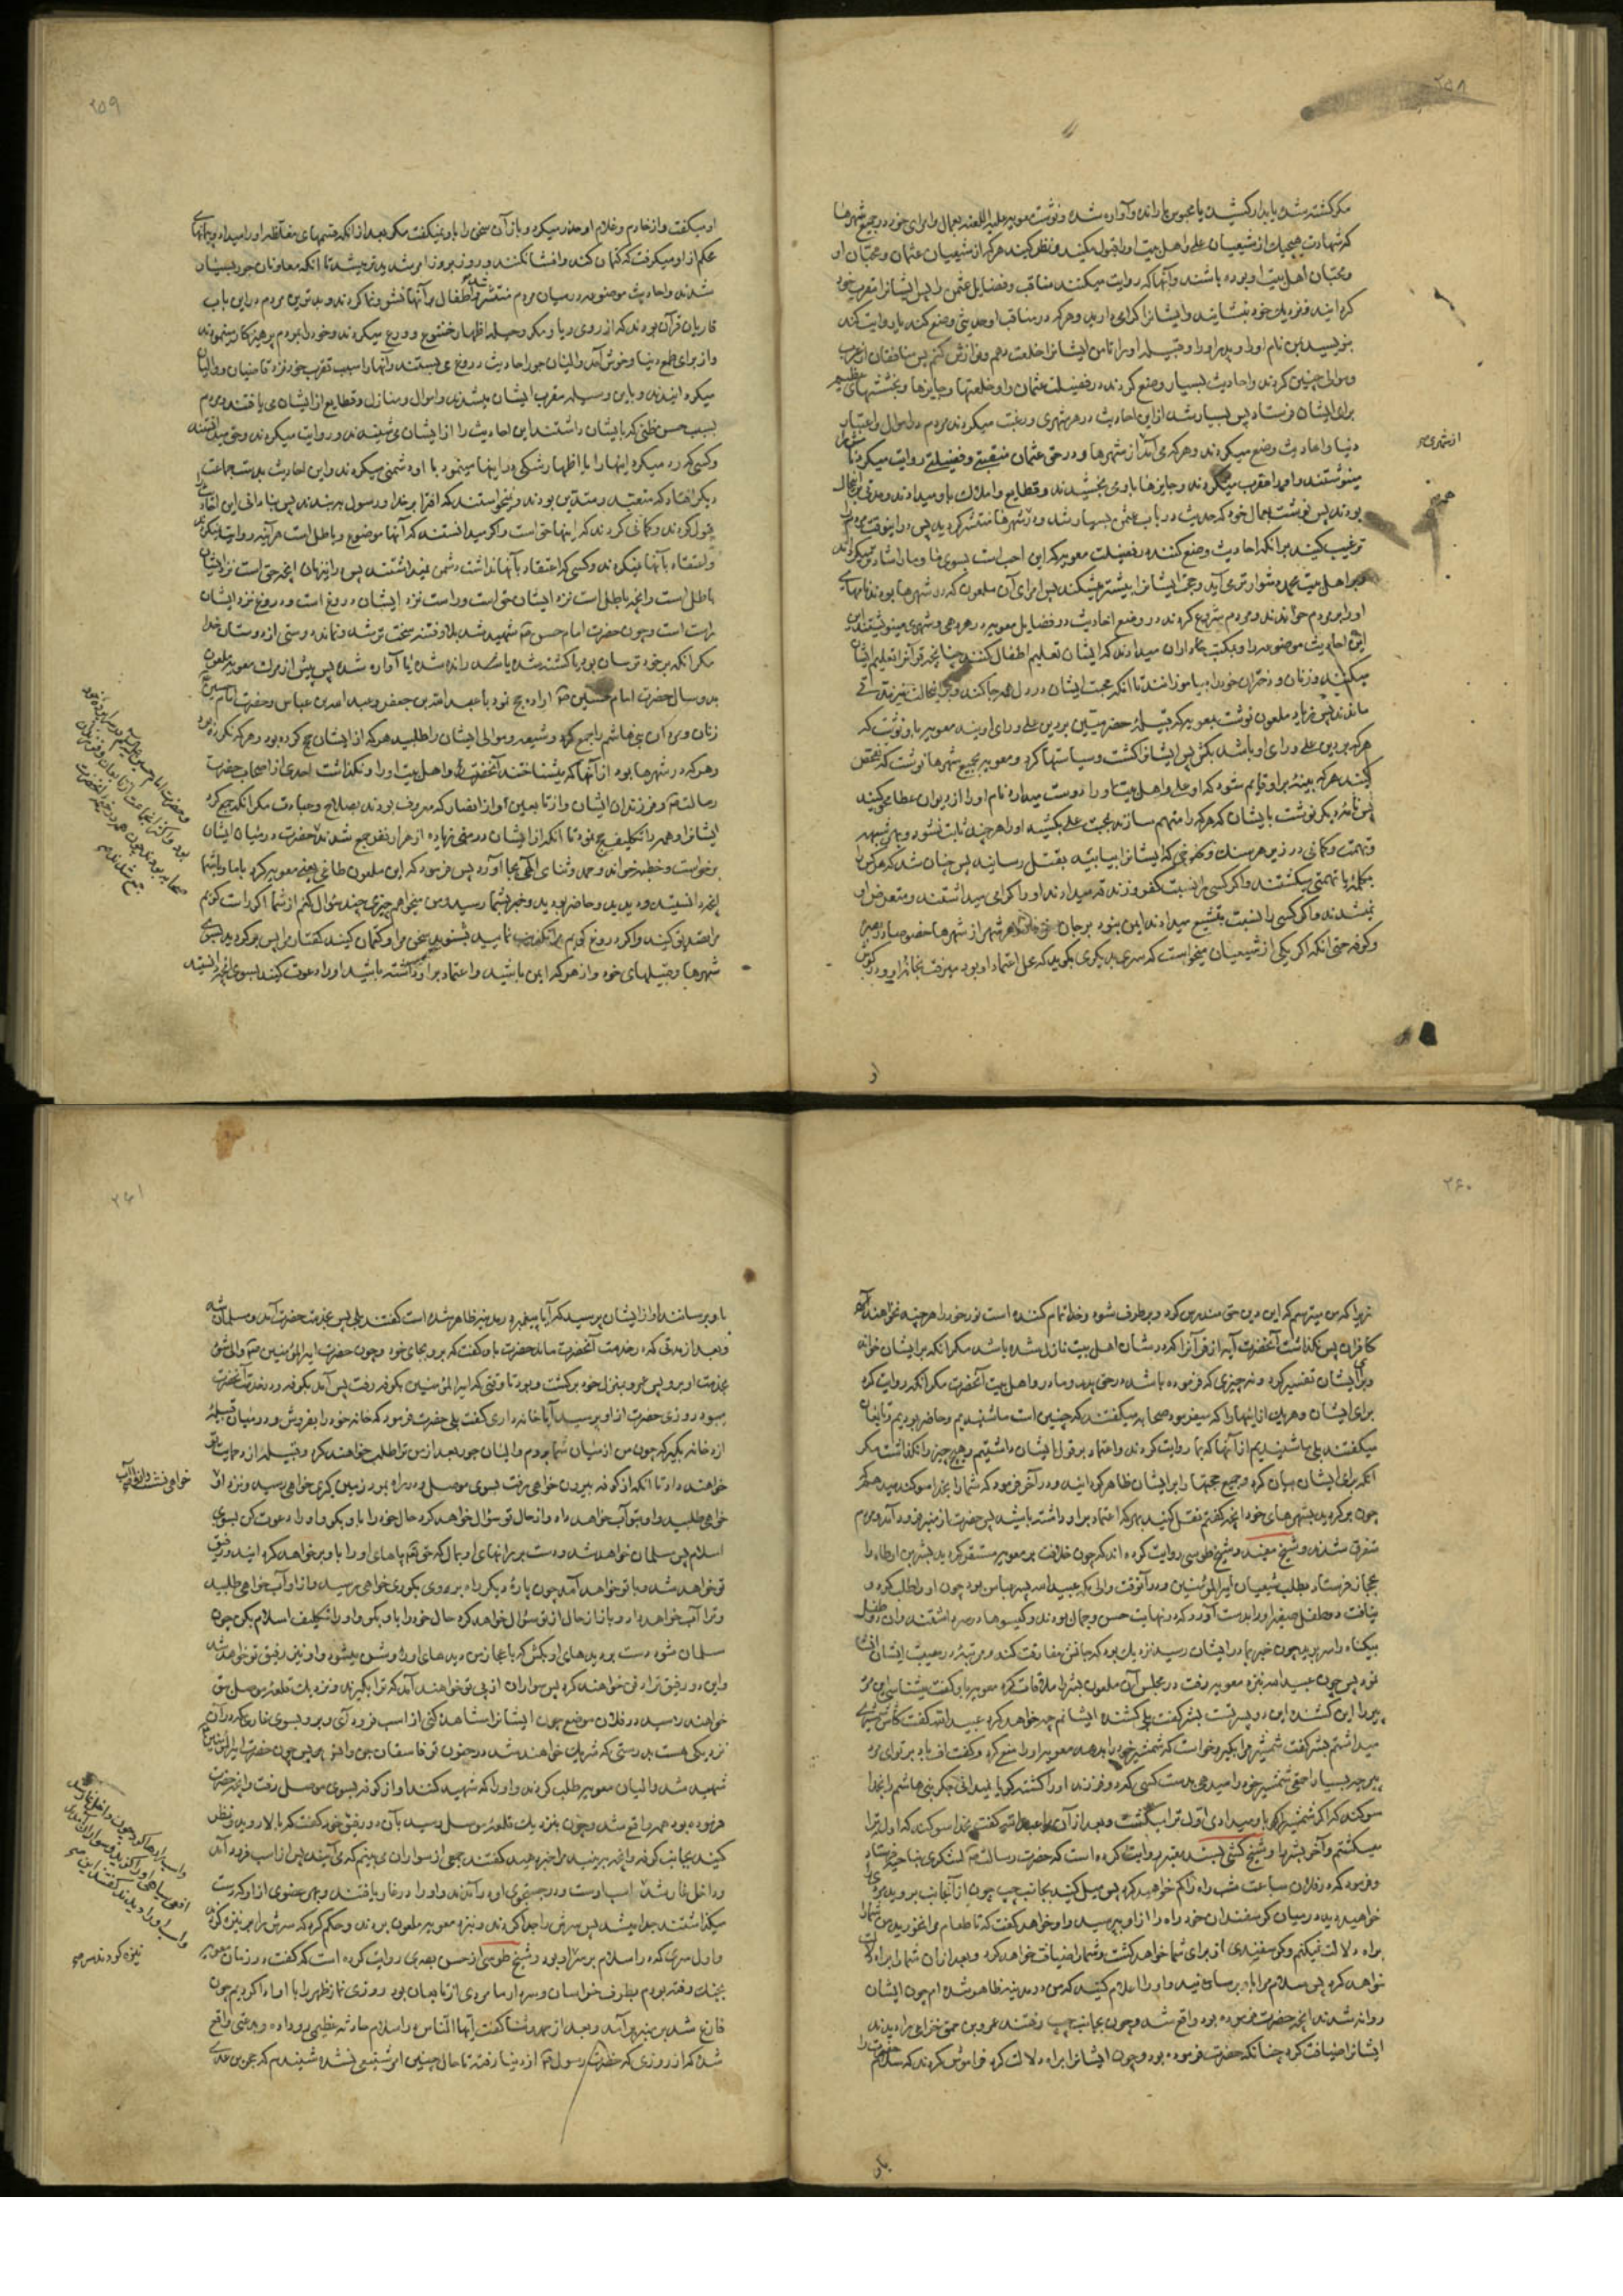 ۲۵۸
مگر کشته شد یا بدار کشیدند یا محبوس یا رانده و آواره شده و نوشت معویه علیه اللعنه بعمال و امرای خود در جمیع شهرها
که شهادت هیچیک از شیعیان علی و اهل بیت او را قبول مکنید و نظر کنید هر که از شیعیان عثمان و محبان او
و محبان اهل بیت او بوده باشند و آنها که روایت میکنند مناقب و فضایل عثمن را پس ایشانرا مقرب خود
گردانید و نزدیك خود بنشانید و ایشانرا گرامی دارید و هر که در مناقب او حدیثی وضع کند یا روایت کند
بنویسید بمن نام او را و پدر او را و قبیله او را تا من ایشانرا خلعت دهم و نوازش کنم پس منافقان از عرب
و موالی چنین کردند و احادیث بسیار وضع کردند در فضیلت عثمان و او خلعتها و جایزها و بخششهای عظیم
برای ایشان فرستاد پس بسیار شد از این احادیث در هر شهری و رغبت میکردند مردم در اموال و اعتبار
دنیا و احادیث وضع میکردند و هر که می آمد از شهرها و در حق عثمان منقبتی و فضیلتی روایت میکرد نامش را
مینوشتند و او را مقرب میکردند و جایزها باو می بخشیدند و قطایع و املاك باو میدادند و مدتی براین حال
بودند پس نوشت بعمال خود که حدیث در باب عثمن بسیار شد و در شهرها منتشر گردید پس در اینوقت مردم را
ترغیب کنید برآنکه احادیث وضع کنند در فضیلت معویه که این احب است بسوی ما و ما را شادتر میگرداند
و بر اهل بیت محمد دشوارتر می آید و حجت ایشانرا بیشتر میشکند پس امرای آن ملعون که در شهرها بودند نامهای
او را بر مردم خواندند و مردم شروع کردند در وضع احادیث در فضایل معویه و در هر دهی و شهری مینوشتند این
احادیث موضوعه را و بمکتب داران میدادند که ایشان تعلیم اطفال کنند چنانچه قرآنرا تعلیم ایشان
میکنند و زنان و دختران خود را بیاموزانند تا آنکه محبت ایشان در دل همه جا کند و بر این حالت نیز مدتی
ماندند پس زیاد ملعون نوشت بمعویه که قبیلهٔ حضرمیین بر دین علی و رای اویند معویه باو نوشت که
هر که بر دین علی و رای او باشد بکش پس ایشانرا کشت و سیاستها کرد و معویه بجمیع شهرها نوشت که تفحص
کنید هر که بینه بر او قایم شود که او علی و اهل بیت او را دوست میدارد نام او را از دیوان عطا محو کنید
پس نامهٔ دیگر نوشت بایشان که هر که را متهم سازند بمحبت علی بکشید او را هر چند ثابت نشود و بهر شبهه
و تهمت و گمانی در زیر هر سنك و کلوخی که ایشانرا بیابید بقتل رسانید پس چنان شد که هر کس را
بکلمهٔ یا تهمتی میکشتند و اگر کسی را نسبت بکفر و زندقه میدادند او را گرامی میداشتند و متعرض او
نمیشدند و اگر کسی را نسبت بتشیع میدادند ایمن نبود بر جان خود در هر شهر از شهرها خصوصا در بصره
و کوفه حتی آنکه اگر یکی از شیعیان میخواست که سری بدیگری بگوید که محل اعتماد او بود میرفت بخانهٔ او و در گوش
از شهری
او
۲۵۹
او میگفت و از خادم و غلام او حذر میکرد و باز آن سخن را باو نمیگفت مگر بعد از آنکه قسمهای مغلظه او را میداد و پیمانهای
محکم از او میگرفت که کتمان کند و افشا نکند و روز بروز امر شدیدتر میشد تا آنکه معاونان جور بسیار
شدند و احادیث موضوعه در میان مردم منتشر شد و اطفال بر آنها نشو و نما کردند و بدترین مردم در این باب
قاریان قرآن بودند که از روی ریا و مکر و حیله اظهار خشوع و ورع میکردند و خود را بمردم پرهیزکار مینمودند
و از برای طمع دنیا و خوش آمد والیان جور احادیث دروغ می بستند و آنها را سبب تقرب خود نزد قاضیان و والیان
میگردانیدند و باین وسیله مقرب ایشان میشدند و اموال و منازل و قطایع از ایشان می یافتند و مردم
بسبب حسن ظنی که بایشان داشتند این احادیث را از ایشان می شنیدند و روایت میکردند و حق میدانستند
و کسی که رد میکرد اینها را یا اظهار شکی در اینها مینمود با او دشمنی میکردند و این احادیث بدست جماعت
دیگر افتاد که متعبد و متدین بودند و نمیخواستند که افترا بر خدا و رسول به بندند پس بنادانی این احادیث را
قبول کردند و گمان کردند که اینها حق است و اگر میدانستند که آنها موضوع و باطل است هر آینه روایت نمیکردند
و اعتقاد بآنها نمیکردند و کسی که اعتقاد بآنها نداشت دشمن نمیداشتند پس در اینزمان آنچه حق است نزد ایشان
باطل است و آنچه باطل است نزد ایشان حق است و راست نزد ایشان دروغ است و دروغ نزد ایشان
راست است و چون حضرت امام حسن شهید شد بلا و فتنه سخت تر شد و نماند دوستی از دوستان خدا
مگر آنکه بر خود ترسان بود یا کشته شده یا رانده شده یا آواره شده پس پیش از مرك معویه ملعون
بدو سال حضرت امام حسین ارادهٔ حج نمود با عبدالله بن جعفر و عبدالله بن عباس و حضرت امام حسین
زنان و مردان بنی هاشم را جمع کرد و شیعه و موالی ایشان را طلبید هر که از ایشان حج کرده بود و هر که نکرده بود
و هر که در شهرها بود از آنها که میشناختند آنحضرت و اهل بیت او را و نگذاشت احدی از اصحاب حضرت
رسالت و فرزندان ایشان و از تابعین و از انصار که معروف بودند بصلاح و عبادت مگر آنکه جمع کرد
ایشانرا و همه را تکلیف حج نمود تا آنکه از ایشان در منی زیاده از هزار نفس جمع شدند حضرت در میان ایشان
برخواست و خطبه خواند و حمد و ثنای الهی بجا آورد پس فرمود که این ملعون طاغی یعنی معویه کرد با ما و با شما
آنچه دانستید و دیدید و حاضر بودید و خبر بشما رسید و من میخواهم چیزی چند سؤال کنم از شما اگر راست گویم
مرا تصدیق کنید و اگر دروغ گویم مرا تکذیب نمایید بشنوید سخن مرا و کتمان کنید گفتار مرا پس برگردید بسوی
شهرها و قبیلهای خود و از هر که ایمن باشید و اعتماد بر او داشته باشید او را دعوت کنید بسوی آنچه دانستید
۲۶۰
زیرا که من میترسم که این دین حق مندرس گردد و برطرف شود و خدا تمام کننده است نور خود را هر چند نخواهند
کافران پس نگذاشت آنحضرت آیهٔ از قرآنرا که در شان اهل بیت نازل شده باشد مگر آنکه بر ایشان خواند
و برای ایشان تفسیر کرد و نه چیزی که فرموده باشد در حق پدر و مادر و اهل بیت آنحضرت مگر آنکه روایت کرد
برای ایشان و هر یك از اینها را که میفرمود صحابه میگفتند که چنین است ما شنیدیم و حاضر بودیم و تابعان
میگفتند بلی ما شنیدیم از آنها که بما روایت کردند و اعتماد بر قول ایشان داشتیم و هیچ چیز را نگذاشت مگر
آنکه برای ایشان بیان کرد و جمیع حجتها را بر ایشان ظاهر گردانید و در آخر فرمود که شما را بخدا سوگند میدهم که
چون برگردید بشهرهای خود آنچه گفتم نقل کنید بهر که اعتماد بر او داشته باشید پس حضرت از منبر فرود آمد و مردم
متفرق شدند و شیخ مفید و شیخ طوسی روایت کرده اند که چون خلافت بر معویه مستقر گردید بشر بن ارطاة را
بحجاز فرستاد بطلب شیعیان امیرالمؤمنین و در آنوقت والی مکه عبیدالله پسر عباس بود چون او را طلب کرد و
نیافت دو طفل صغیر او را بدست آورد که در نهایت حسن و جمال بودند و گیسوها در سر داشتند و آن دو طفل
بیگناه را سر برید چون خبر بمادر ایشان رسید نزدیك بود که جانش مفارقت کند و مرثیه در مصیبت ایشان انشا
نمود پس چون عبیدالله بنزد معویه رفت در مجلس آن ملعون بشر را ملاقات کرد معویه باو گفت میشناسی این مرد
پیر را این کشندهٔ این دو پسر تست بشر گفت بلی کشندهٔ ایشانم چه خواهد کرد عبیدالله گفت کاش شمشیری
میداشتم بشر گفت شمشیر مرا بگیر و خواست که شمشیر خود را بدهد معویه او را منع کرد و گفت اف باد بر تو ای مرد
پیر چه بسیار احمقی شمشیر خود را میدهی بدست کسی که دو فرزند او را کشتهٔ گویا نمیدانی جگر بنی هاشم را بخدا
سوگند که اگر شمشیر را باو میدادی اول ترا میکشت و بعد از آن مرا عبیدالله گفت بخدا سوگند که اول ترا
میکشتم و آخر بشر را و شیخ کشی بسند معتبر روایت کرده است که حضرت رسالت لشکری بناحیهٔ فرستاد
و فرمود که در فلان ساعت شب راه را گم خواهید کرد پس میل کنید بجانب چپ چون از آنجانب بروید مردی را
خواهید دید در میان گوسفندان خود راه را از او بپرسید و او خواهد گفت که تا طعام مرا نخورید من شما را
براه دلالت نمیکنم و گوسفندی از برای شما خواهد کشت و شما را ضیافت خواهد کرد و بعد از آن شما را براه دلالت
خواهد کرد پس سلام مرا باو برسانید و او را اعلام کنید که من در مدینه ظاهر شده ام چون ایشان
روانه شدند آنچه حضرت فرموده بود واقع شد و چون بجانب چپ رفتند عمرو بن حمق خزاعی را دیدند
ایشانرا ضیافت کرد چنانکه حضرت فرموده بود و چون ایشانرا براه دلالت کرد فراموش کردند که سلام حضرت را
۲۶۱
باو برسانند او از ایشان پرسید که آیا پیغمبر در مدینه ظاهر شده است گفتند بلی پس بخدمت حضرت آمد و مسلمان شد
و بعد از مدتی که در خدمت آنحضرت ماند حضرت باو گفت که برو بجای خود و چون حضرت امیرالمؤمنین والی شود
بخدمت او برو پس عمرو بمنزل خود برگشت و بود تا وقتی که امیرالمؤمنین بکوفه رفت پس آمد بکوفه و در خدمت آنحضرت
میبود روزی حضرت از او پرسید آیا خانه داری گفت بلی حضرت فرمود که خانه خود را بفروش و در میان قبیلهٔ
ازد خانه بگیر که چون من از میان شما بروم والیان جور بعد از من ترا طلب خواهند کرد و قبیله ازد حمایت تو
خواهند داد تا آنکه از کوفه بیرون خواهی رفت بسوی موصل و در راه بمرد زمین گیری خواهی رسید و نزد او
خواهی نشست و از او آب
خواهی طلبید و او بتو آب خواهد داد و از حال تو سؤال خواهد کرد حال خود را باو بگو و او را دعوت کن بسوی
اسلام پس مسلمان خواهد شد و دست بر رانهای او بمال که حق تعالی پاهای او را با او بر خواهد گردانید و رفیق
تو خواهد شد و با تو خواهد آمد چون پارهٔ دیگر راه بروی بکوری خواهی رسید و از او آب خواهی طلبید
و ترا آب خواهد داد و باز از حال از تو سؤال خواهد کرد حال خود را باو بگو و او را تکلیف اسلام بکن چون
مسلمان شود دست بر دیدهای او بکش که باعجاز من دیدهای او روشن میشود و او نیز رفیق تو خواهد شد
و این دو رفیق ترا دفن خواهند کرد پس سواران از پی تو خواهند آمد که ترا بگیرند و نزدیك قلعهٔ موصل بتو
خواهند رسید در فلان موضع چون ایشانرا مشاهده کنی از اسب فرود آی و برو بسوی غاری که در آن
نزدیکی هست بدرستی که شریك خواهند شد در خون تو فاسقان جن و انس پس چون حضرت امیرالمؤمنین
شهید شد والیان معویه طلب کردند و او را که شهید کنند او از کوفه بسوی موصل رفت و آنچه حضرت
فرموده بود همه واقع شد و چون بنزدیك قلعهٔ موصل رسید بآن دو رفیق خود گفت که بالا روید و نظر
کنید بجانب کوفه و آنچه به بینید مرا خبر دهید گفتند جمعی از سواران می بینم که می آیند پس از اسب فرود آمد
و داخل غار شد و اسب او رفت و در جستجوی او در آمدند و او را در غار یافتند و بهر عضوی از او که دست
میگذاشتند جدا میشد پس سرش را جدا کردند و بنزد معویه ملعون بردند و حکم کرد که سرش را بر نیزه کردند
و اول سری که در اسلام بر نیزه او بود و شیخ طوسی از حسن بصری روایت کرده است که گفت در زمان معویه
بجنك رفته بودم بطرف خراسان و سردار ما مردی از تابعان بود روزی نماز ظهر را با او ادا کردیم چون
فارغ شد بر منبر بر آمد و بعد از حمد و ثنا گفت ایها الناس در اسلام حادثهٔ عظیمی رو داده و امر عظیمی واقع
شده که از روزی که حضرت رسول از دنیا رفته تا حال چنین امر شنیعی نشده شنیدم که حجر بن عدی
نیزه کردند
باو